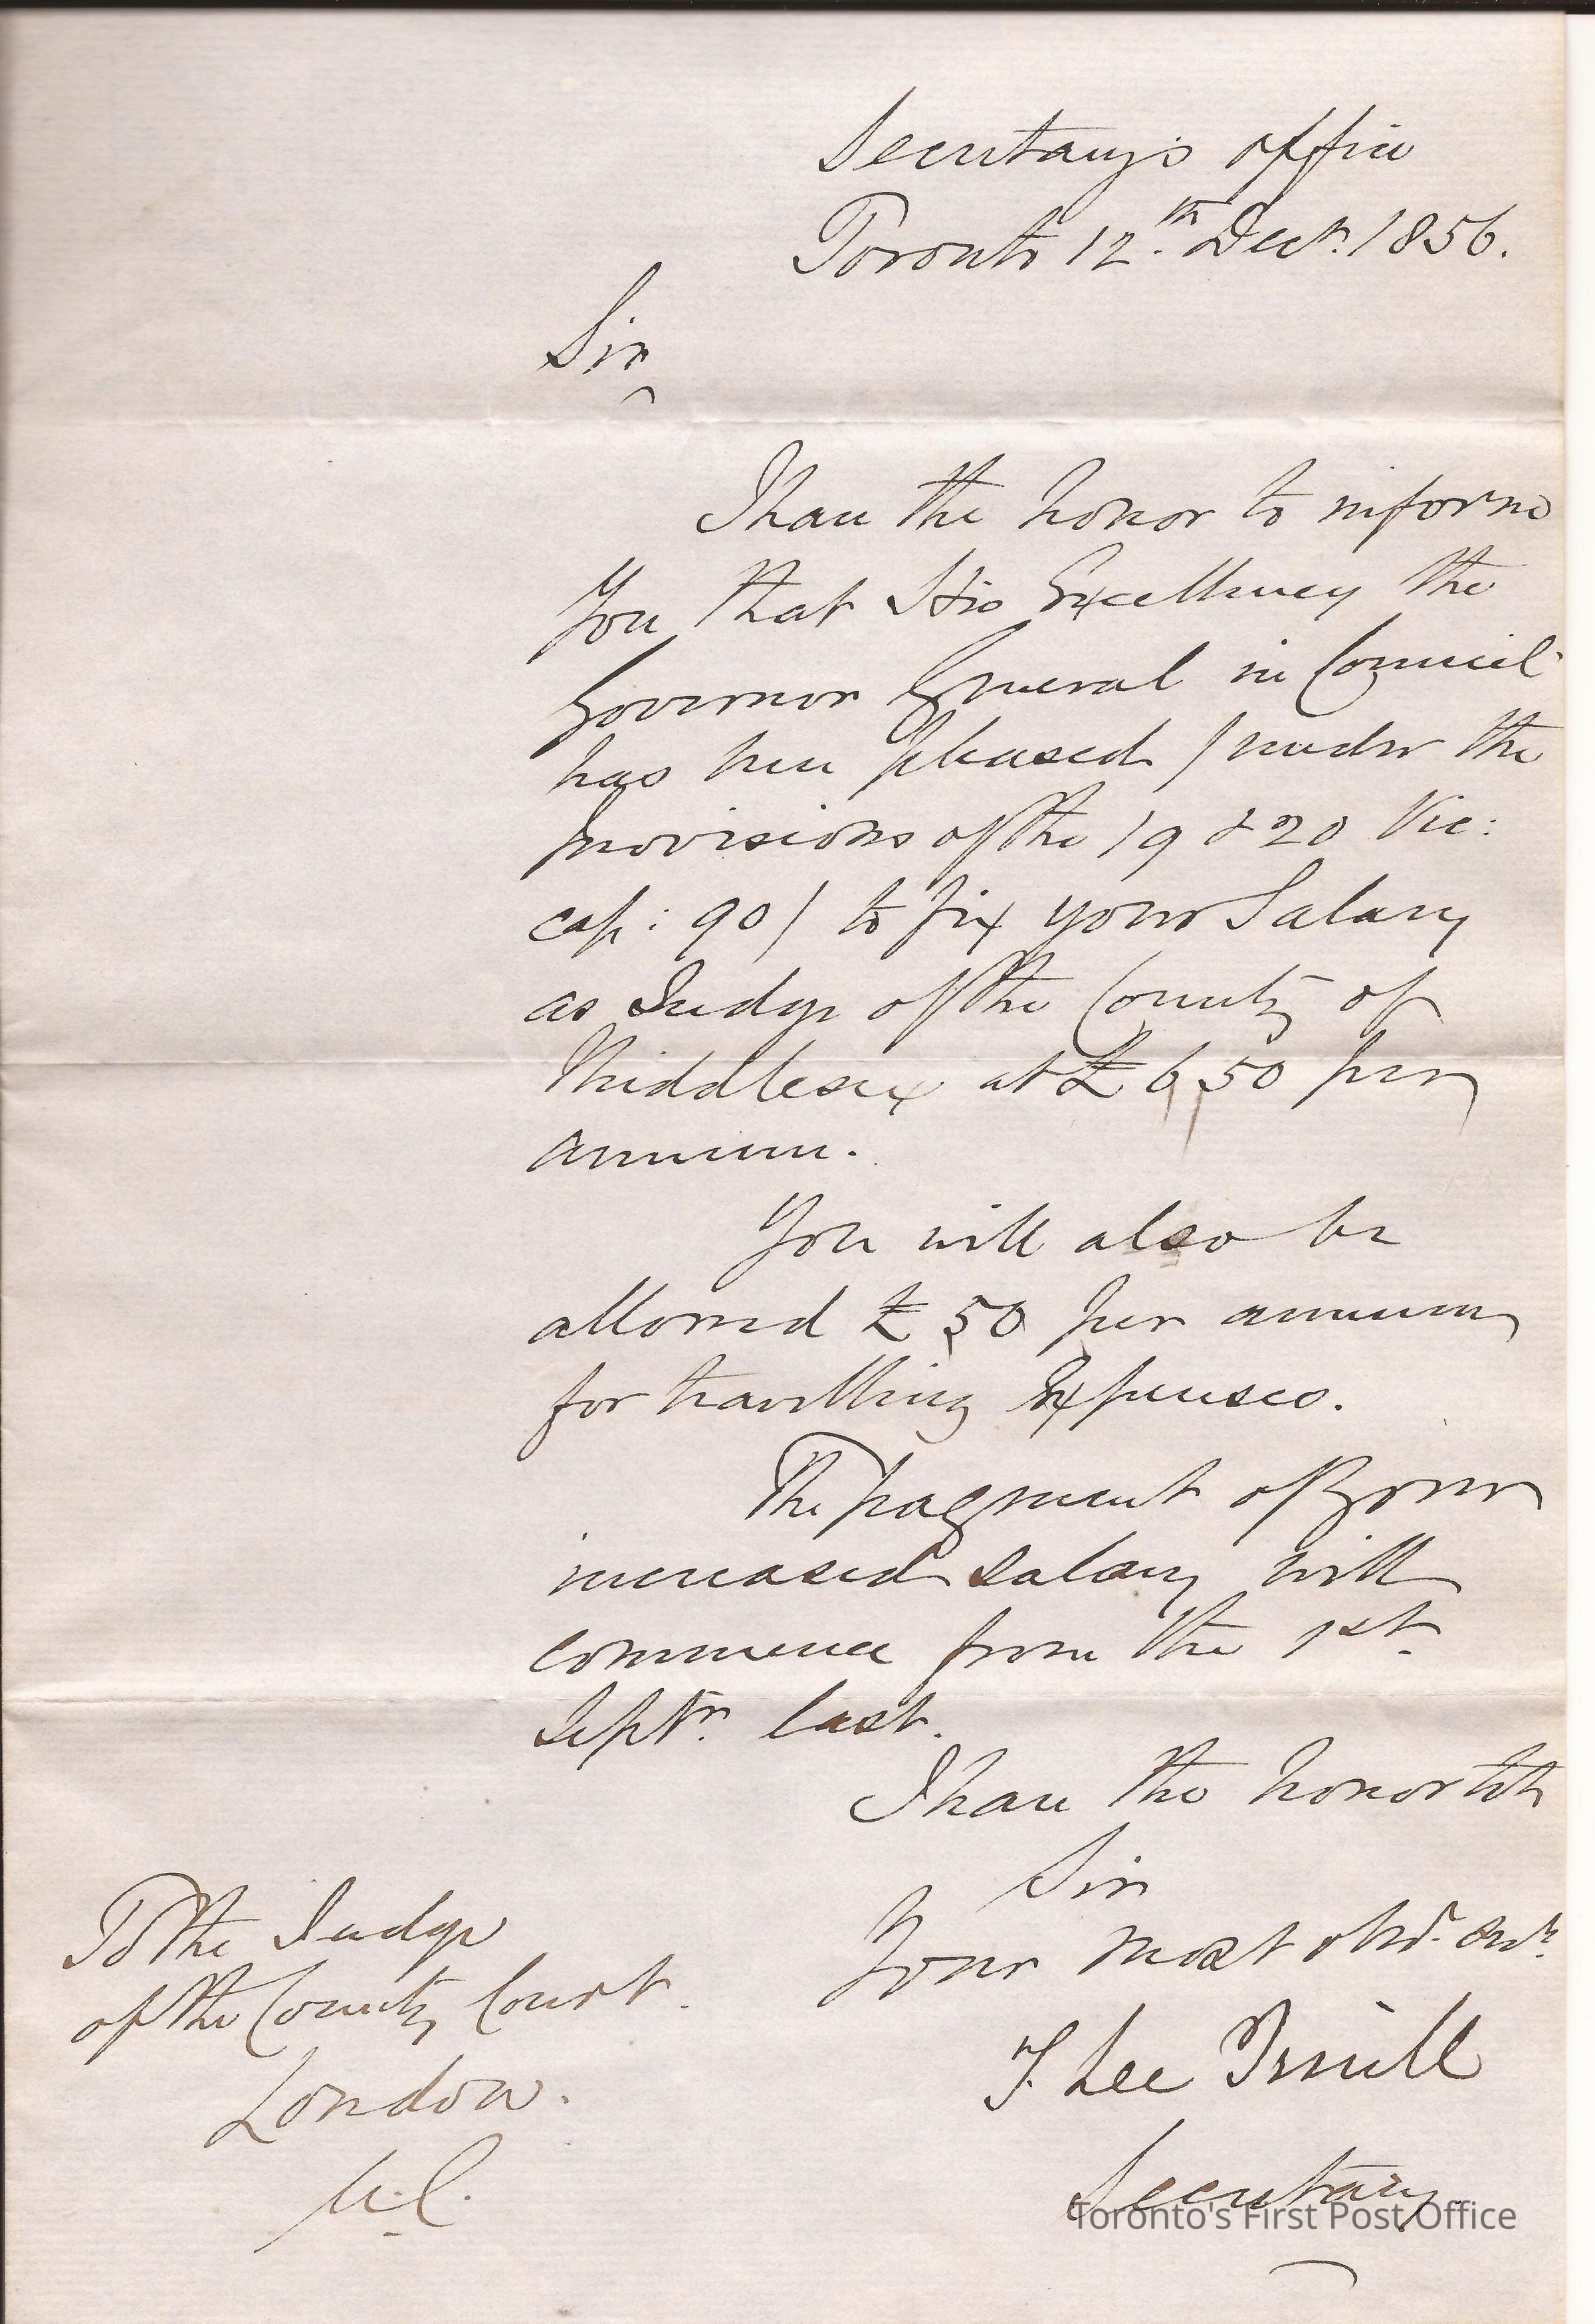 Secretary's office
Toronto 12.th Decr. 1856.
Sir
I have the honor to inform
You that His Excellency the
Governor General in Council
has been pleased / under the
provisions of the 19 & 20 Vic:
cap: 90 / to fix your Salary
as Judge of the County of
Middlesex at £650 per
annum.
You will also be
allowed £50 per annum
for travelling Expenses.
The payment of your
increased salary will
commence from the 1st.
Septr. last.
I have the honor to be
Sir
Your most obdt. Servt.
T. Lee Terrill
Secretary
To the Judge
of the County Court.
London.
U.C.
Toronto's First Post Office